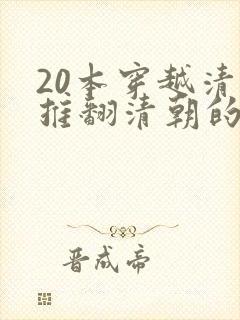 20本穿越清
推翻清朝的
晋成帝